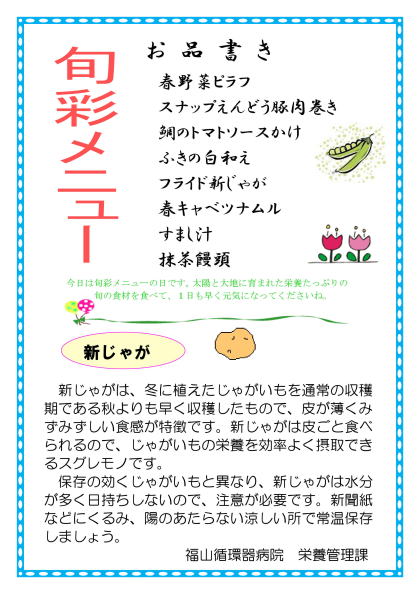 旬彩メニュー
お品書き
春野菜ピラフ
スナップえんどう豚肉巻き
鯛のトマトソースかけ
ふきの白和え
フライド新じゃが
春キャベツナムル
すまし汁
抹茶饅頭
今日は旬彩メニューの日です。太陽と大地に育まれた栄養たっぷりの
旬の食材を食べて、1日も早く元気になってくださいね。
新じゃが
新じゃがは、冬に植えたじゃがいもを通常の収穫
期である秋よりも早く収穫したもので、皮が薄くみ
ずみずしい食感が特徴です。新じゃがは皮ごと食べ
られるので、じゃがいもの栄養を効率よく摂取でき
るスグレモノです。
保存の効くじゃがいもと異なり、新じゃがは水分
が多く日持ちしないので、注意が必要です。新聞紙
などにくるみ、陽のあたらない涼しい所で常温保存
しましょう。
福山循環器病院 栄養管理課